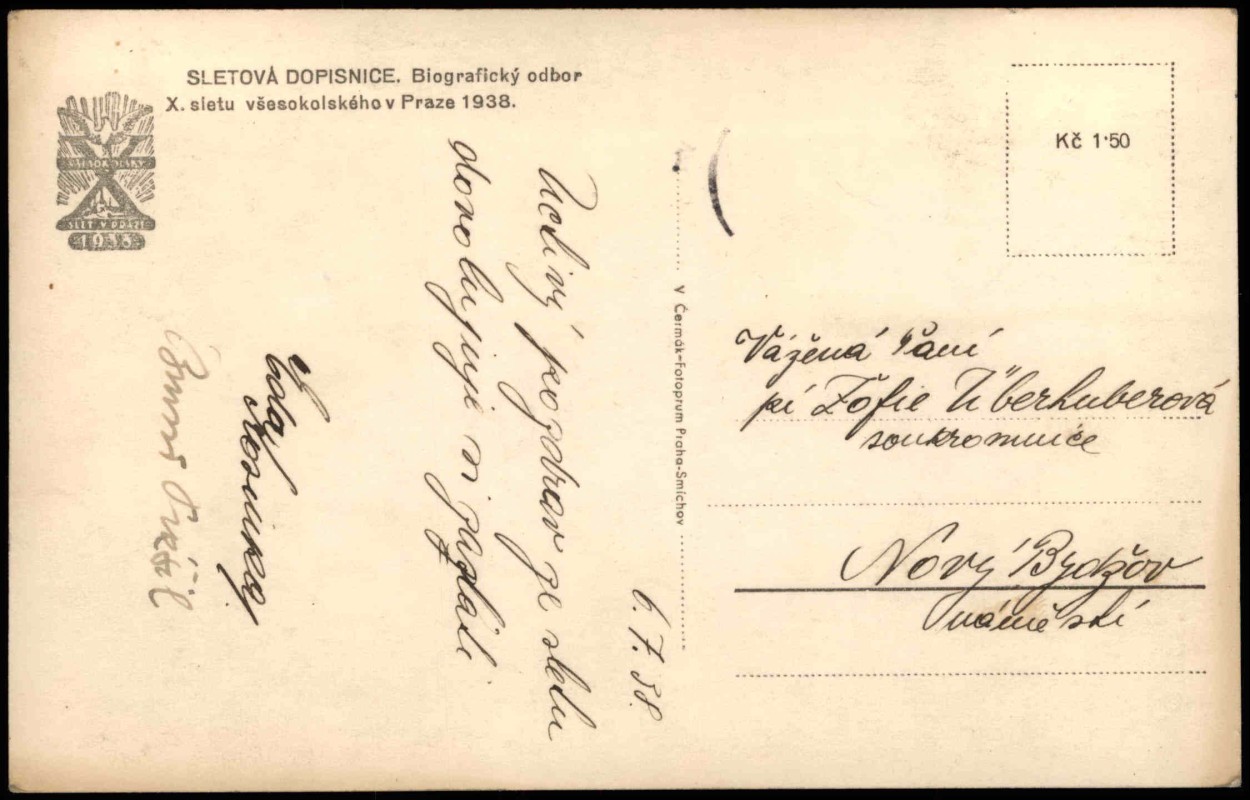 SLETOVÁ DOPISNICE. Biografický odbor
X. sletu všesokolského v Praze 1938.
VŠESOKOLSKÝ
SLET V PRAZE
1938
Kč 1·50
V Čermák-Fotoprum Praha-Smíchov
6. 7. 38.
Uctivý pozdrav ze sletu
dovolují si zaslati
Vážená Paní
pí Žofie Überhuberová
soukromnice
Nový Bydžov
náměstí